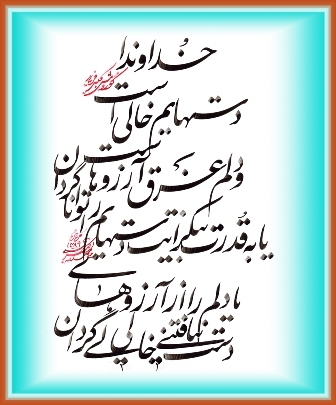 خداوندا
دستهایم خالی است
ودلم غرق آرزوها
یا به قدرت بیکرانت دستهایم را توانا گردان
یا دلم را از آرزوهای
دست نیافتنی خالی گردان